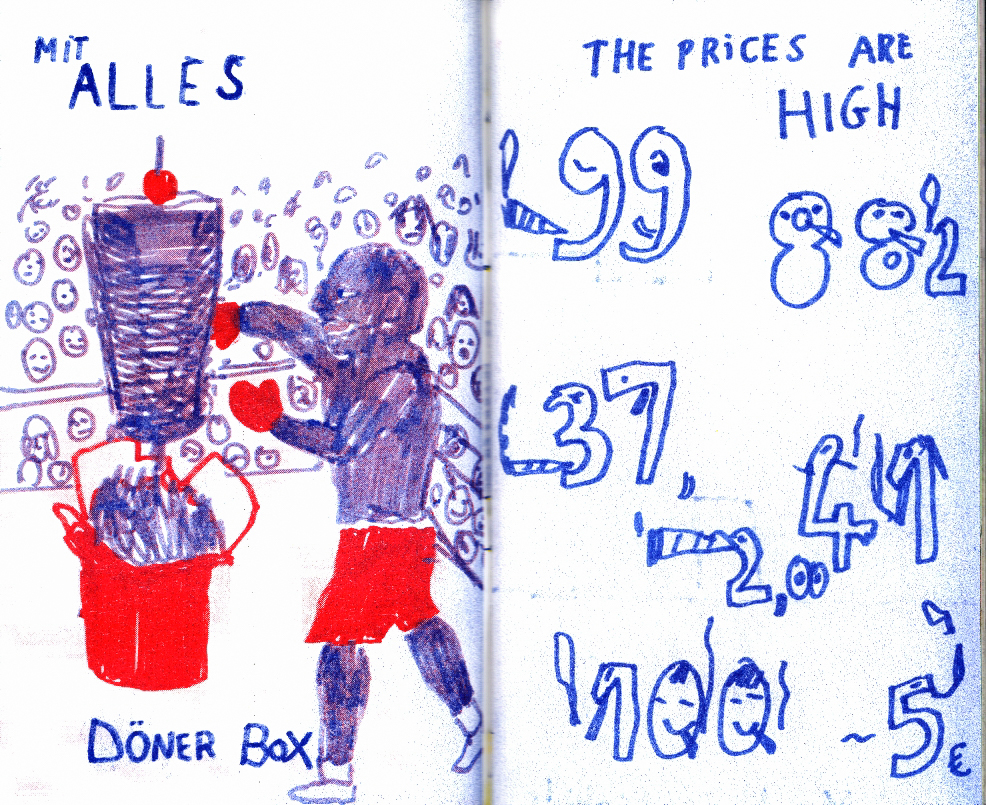 MiT
ALLES
DÖNER BOX
THE PRiCES ARE
HIGH
99
882
37,
41
2,00
100
~5€